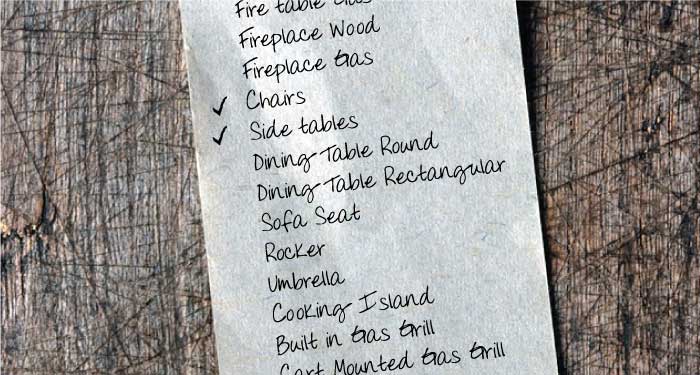 Fire table
Fireplace Wood
Fireplace Gas
✓ Chairs
✓ Side tables
Dining Table Round
Dining Table Rectangular
Sofa Seat
Rocker
Umbrella
Cooking Island
Built in Gas Grill
Cart Mounted Gas Grill